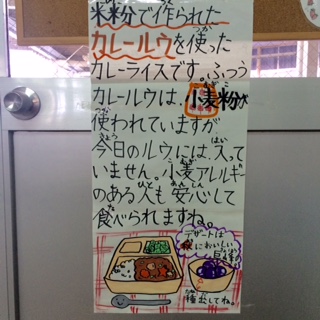 米粉で作られた
カレールウを使った
カレーライスです。ふつう
カレールウは、小麦粉が
使われていますが
今日のルウには入って
いません。小麦アレルギー
のある人も安心して
食べられますね。
デザートは
秋においしい
巨峰
種出してね。